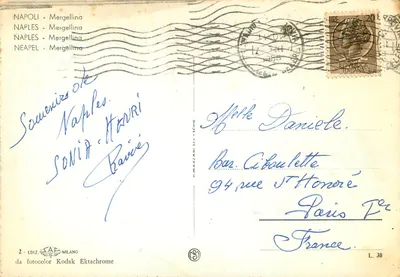 NAPOLI - Mergellina
NAPLES - Mergellina
NAPLES - Mergellina
NEAPEL - Mergellina
20
Souvenirs de
Naples.
SONIA. HENRI
Mlle Daniele.
Bar. Ciboulette
94, rue St Honoré
Paris 1er
France.
2 - EDIZ. SAF MILANO
da fotocolor Kodak Ektachrome
L. 30